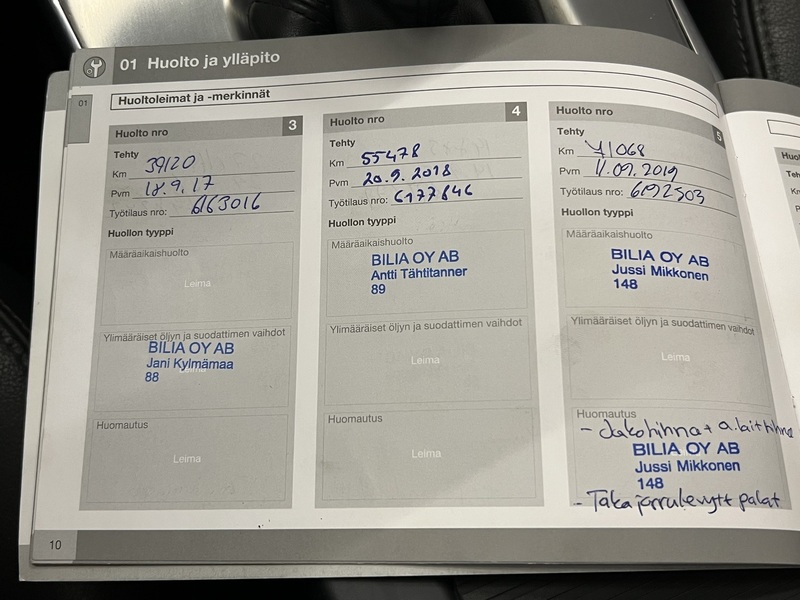 01 Huolto ja ylläpito
01
Huoltoleimat ja -merkinnät
Huolto nro 3
Tehty
Km 39120
Pvm 18.9.17
Työtilaus nro: 6163016
Huollon tyyppi
Määräaikaishuolto
Leima
Ylimääräiset öljyn ja suodattimen vaihdot
BILIA OY AB
Jani Kylmämaa
88
Huomautus
Leima
Huolto nro 4
Tehty
Km 55478
Pvm 20.9.2018
Työtilaus nro: 6177846
Huollon tyyppi
Määräaikaishuolto
BILIA OY AB
Antti Tähtitanner
89
Ylimääräiset öljyn ja suodattimen vaihdot
Leima
Huomautus
Leima
Huolto nro 5
Tehty
Km 71068
Pvm 11.09.2019
Työtilaus nro: 6192503
Huollon tyyppi
Määräaikaishuolto
BILIA OY AB
Jussi Mikkonen
148
Ylimääräiset öljyn ja suodattimen vaihdot
Leima
Huomautus
- Jakohihna + a.laitehihna
BILIA OY AB
Jussi Mikkonen
148
- Takajarrulevyt + palat
10